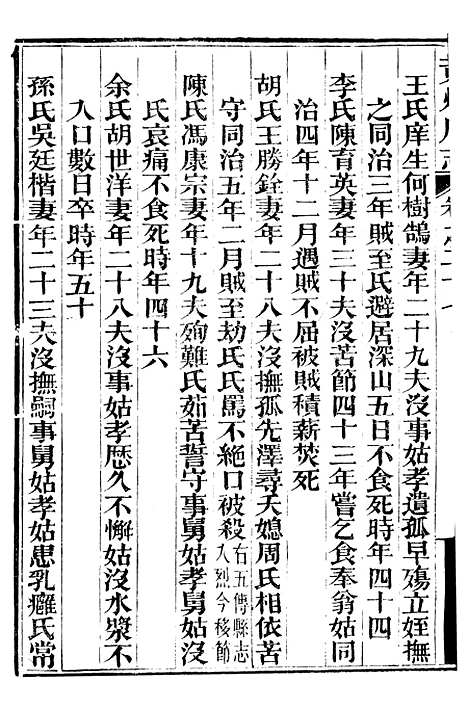 王氏庠生何樹鵠妻年二十九夫沒事姑孝遺孤早殤立姪撫
之同治三年賊至氏避居深山五日不食死時年四十四
李氏陳育英妻年三十夫沒苦節四十三年嘗乞食奉翁姑同
治四年十二月遇賊不屈被賊積薪焚死
胡氏王勝銓妻年二十八夫沒撫孤先澤尋夭媳周氏相依苦
守同治五年二月賊至劫氏氏罵不絕口被殺右五傳縣志入烈今移節
陳氏馮康宗妻年十九夫殉難氏茹苦誓守事舅姑孝舅姑沒
氏哀痛不食死時年四十六
余氏胡世洋妻年二十八夫沒事姑孝歷久不懈姑沒水漿不
入口數日卒時年五十
孫氏吳廷楷妻年二十三夫沒撫嗣事舅姑孝姑患乳癰氏常